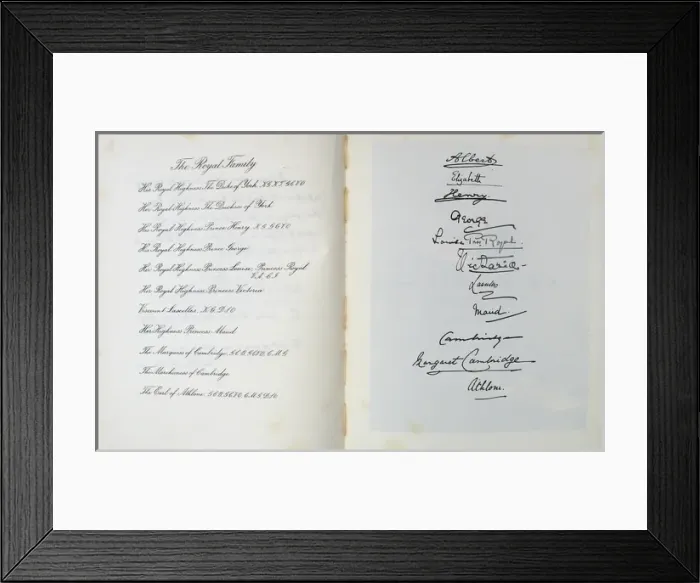 The Royal Family
His Royal Highness The Duke of York K.G. K.T. G.C.V.O.
Her Royal Highness The Duchess of York
His Royal Highness Prince Henry K.G. G.C.V.O.
His Royal Highness Prince George
Her Royal Highness Princess Louise, Princess Royal
Her Royal Highness Princess Victoria
Viscount Lascelles, K.G. D.S.O.
Her Highness Princess Maud
The Marquess of Cambridge, G.C.B. G.C.V.O. C.M.G.
The Marchioness of Cambridge
The Earl of Athlone, G.C.B. G.C.V.O. C.M.G. D.S.O.
Albert
Elizabeth
Henry
George
Louise Pss Royal
Victoria
Maud
Cambridge
Margaret Cambridge
Athlone